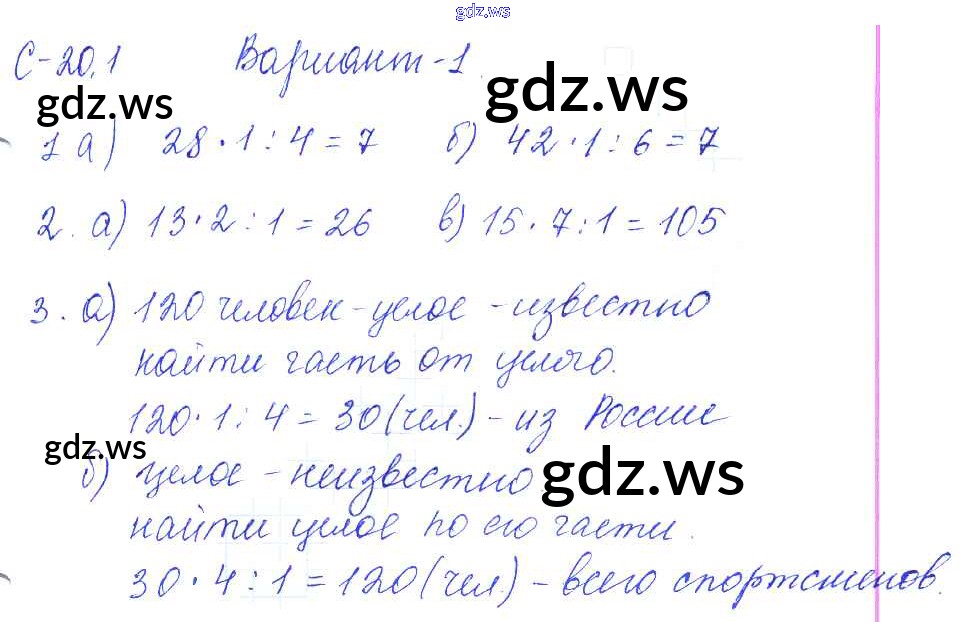 gdz.ws
С-20.1 Вариант-1.
gdz.ws gdz.ws
1 а) 28·1:4=7 б) 42·1:6=7
2. а) 13·2:1=26 в) 15·7:1=105
3. а) 120 человек-целое-известно
найти часть от целого.
120·1:4=30(чел.)-из России
gdz.ws gdz.ws
б) целое-неизвестно
найти целое по его части.
30·4:1=120(чел.)-всего спортсменов.